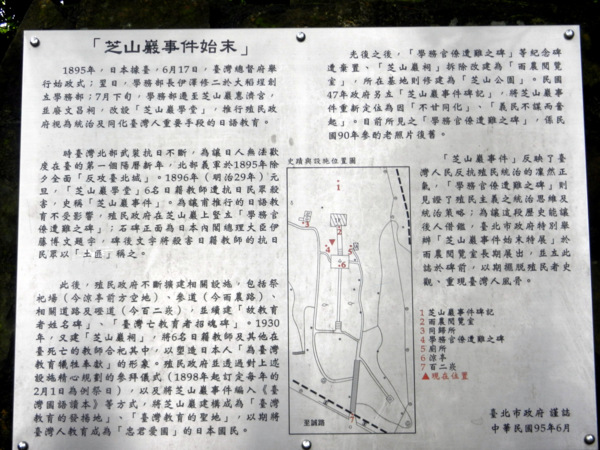 「芝山巖事件始末」
1895年，日本據臺，6月17日，臺灣總督府舉
行始政式；翌日，學務部長伊澤修二於大稻埕創
立學務部；7月下旬，學務部遷至芝山巖惠濟宮，
並廢文昌祠，改設「芝山巖學堂」，推行殖民政
府視為統治及同化臺灣人重要手段的日語教育。
時臺灣北部武裝抗日不斷，為讓日人無法歡
度在臺的第一個陽曆新年，北部義軍於1895年除
夕全面「反攻臺北城」。1896年（明治29年）元
旦，「芝山巖學堂」6名日籍教師遭抗日民眾殺
害，史稱「芝山巖事件」。為讓甫推行的日語教
育不受影響，殖民政府在芝山巖上豎立「學務官
僚遭難之碑」；石碑正面為日本內閣總理大臣伊
藤博文題字，碑後文字將殺害日籍教師的抗日
民眾以「土匪」稱之。
此後，殖民政府不斷擴建相關設施，包括祭
祀場（今涼亭前方空地）、參道（今雨農路）、
相關道路及磴道（今百二崁），並續建「故教育
者姓名碑」、「臺灣亡教育者招魂碑」。1930
年，又建「芝山巖祠」，將6名日籍教師及其他在
臺死亡的教師合祀其中，以塑造日本人「為臺灣
教育犧牲奉獻」的形象。殖民政府並透過對上述
設施精心規劃的參拜儀式（1898年起訂定每年的
2月1日為例祭日），以及將芝山巖事件編入《臺
灣國語讀本》等方式，將芝山巖建構成為「臺灣
教育的發祥地」、「臺灣教育的聖地」，以期將
臺灣人教育成為「忠君愛國」的日本國民。
光復之後，「學務官僚遭難之碑」等紀念碑
遭棄置、「芝山巖祠」拆除改建為「雨農閱覽
室」，所在基地則修建為「芝山公園」。民國
47年政府另立「芝山巖事件碑記」，將芝山巖事
件重新定位為因「不甘同化」、「義民不謀而奮
起」。目前所見之「學務官僚遭難之碑」，係民
國90年參酌老照片復舊。
「芝山巖事件」反映了臺
灣人民反抗殖民統治的凜然正
氣，「學務官僚遭難之碑」則
見證了殖民主義之統治思維及
統治策略；為讓這段歷史能讓
後人借鑑，臺北市政府特別舉
辦「芝山巖事件始末特展」於
雨農閱覽室長期展出，並立此
誌於碑前，以期擺脫殖民者史
觀、重現臺灣人風骨。
史蹟與設施位置圖
1
2
3
4
5
6
7
至誠路
1 芝山巖事件碑記
2 雨農閱覽室
3 同歸所
4 學務官僚遭難之碑
5 廁所
6 涼亭
7 百二崁
▲現在位置
臺北市政府 謹誌
中華民國95年6月